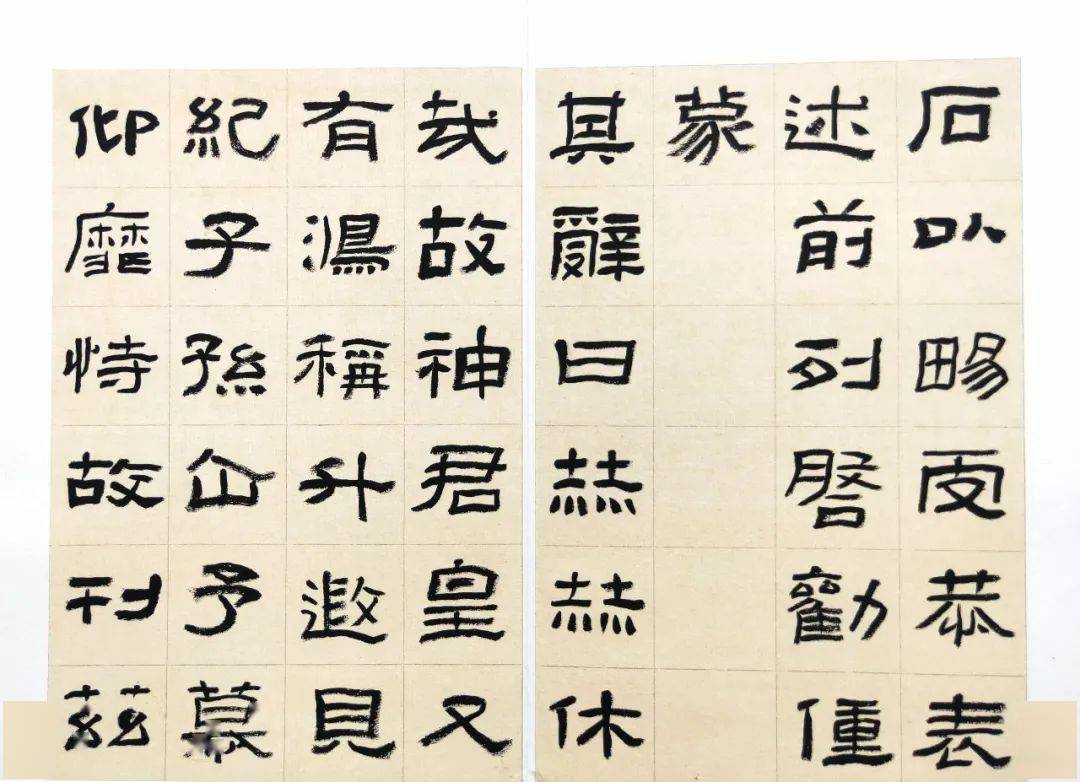 石以畼恭表
述前列啓勸僮
蒙
其辭曰赫赫休
哉故神君皇又
有鴻稱升遐見
紀子孫企予慕
仰靡恃故刊兹